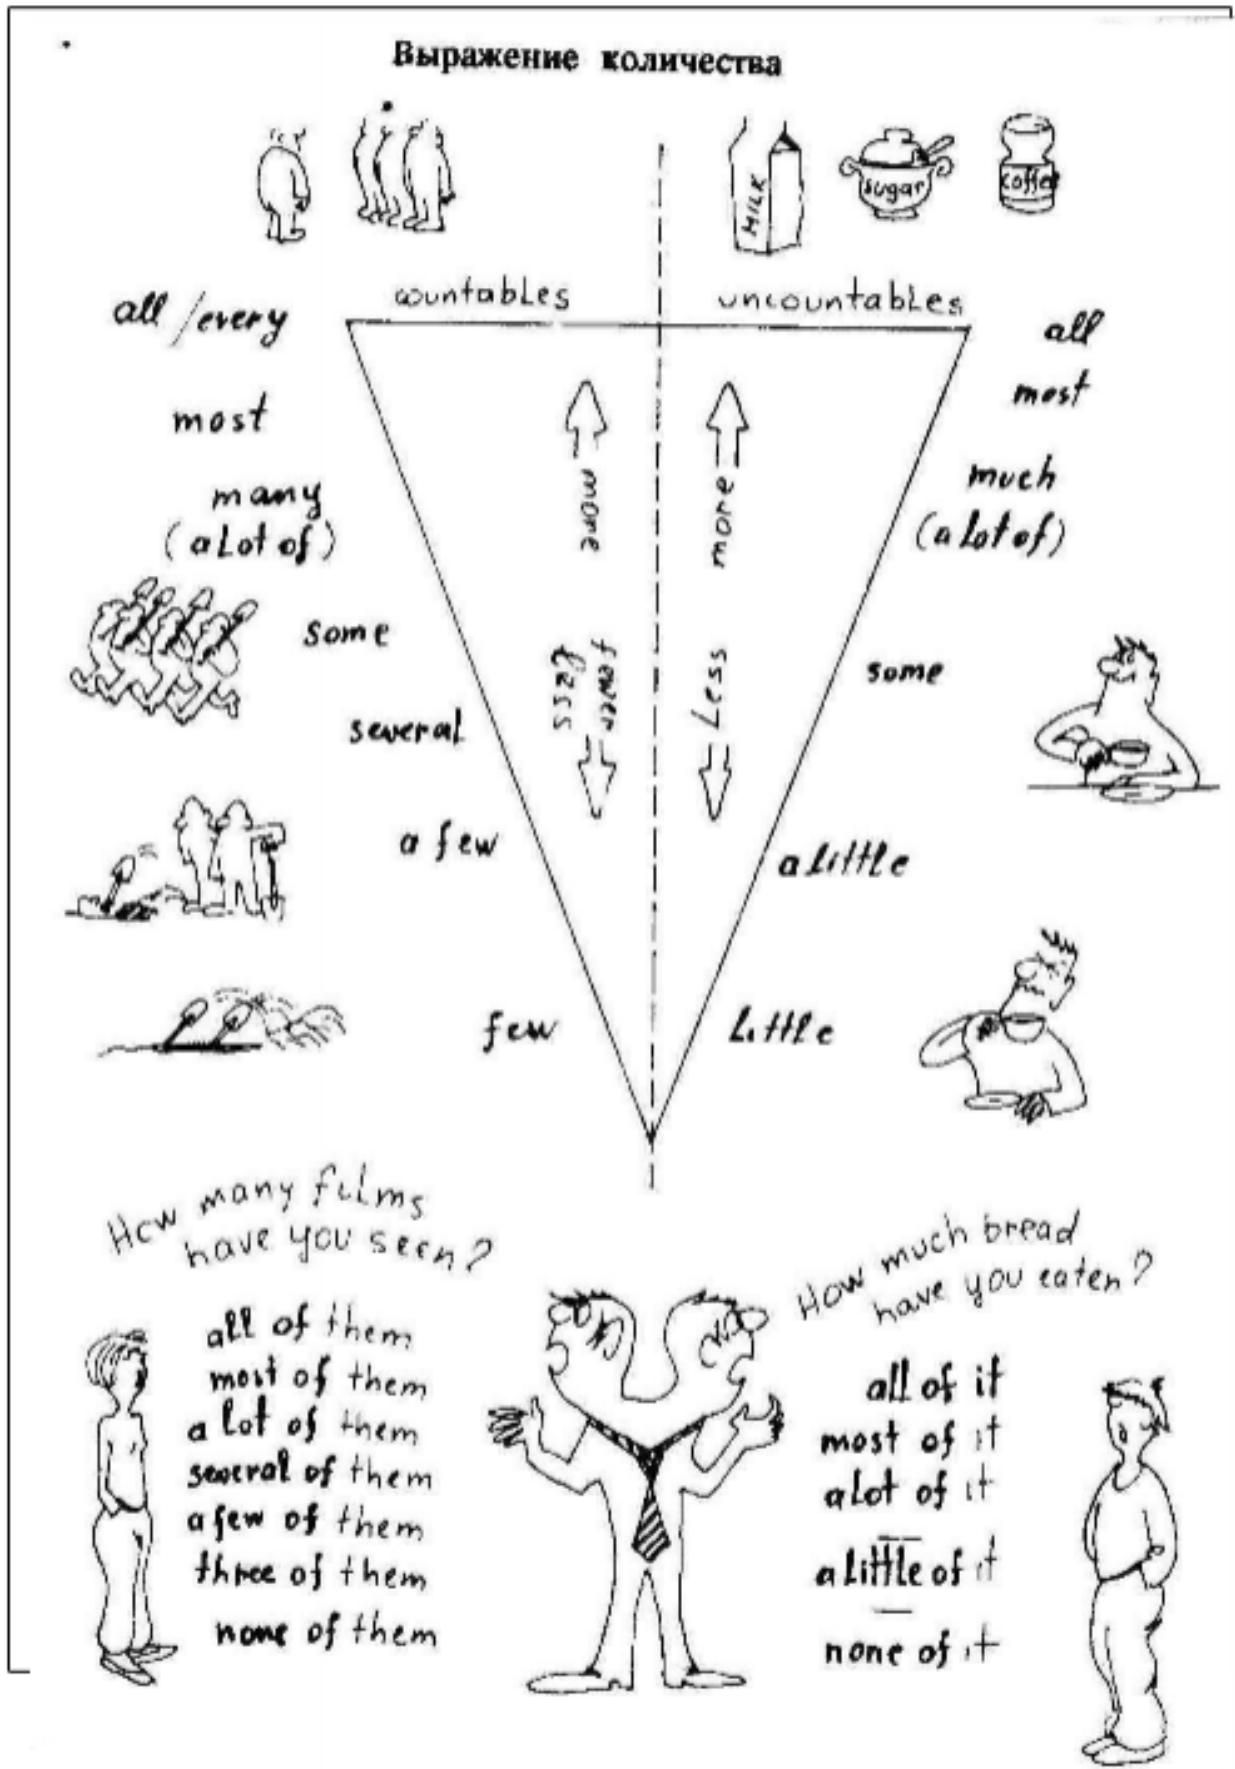 Выражение количества
MILK
sugar
coffee
countables
uncountables
all / every
all
most
most
many
(a lot of)
much
(a lot of)
more
more
some
some
several
fewer
less
Less
a few
a little
few
little
How many films
have you seen?
all of them
most of them
a lot of them
several of them
a few of them
three of them
none of them
How much bread
have you eaten?
all of it
most of it
a lot of it
a little of it
none of it